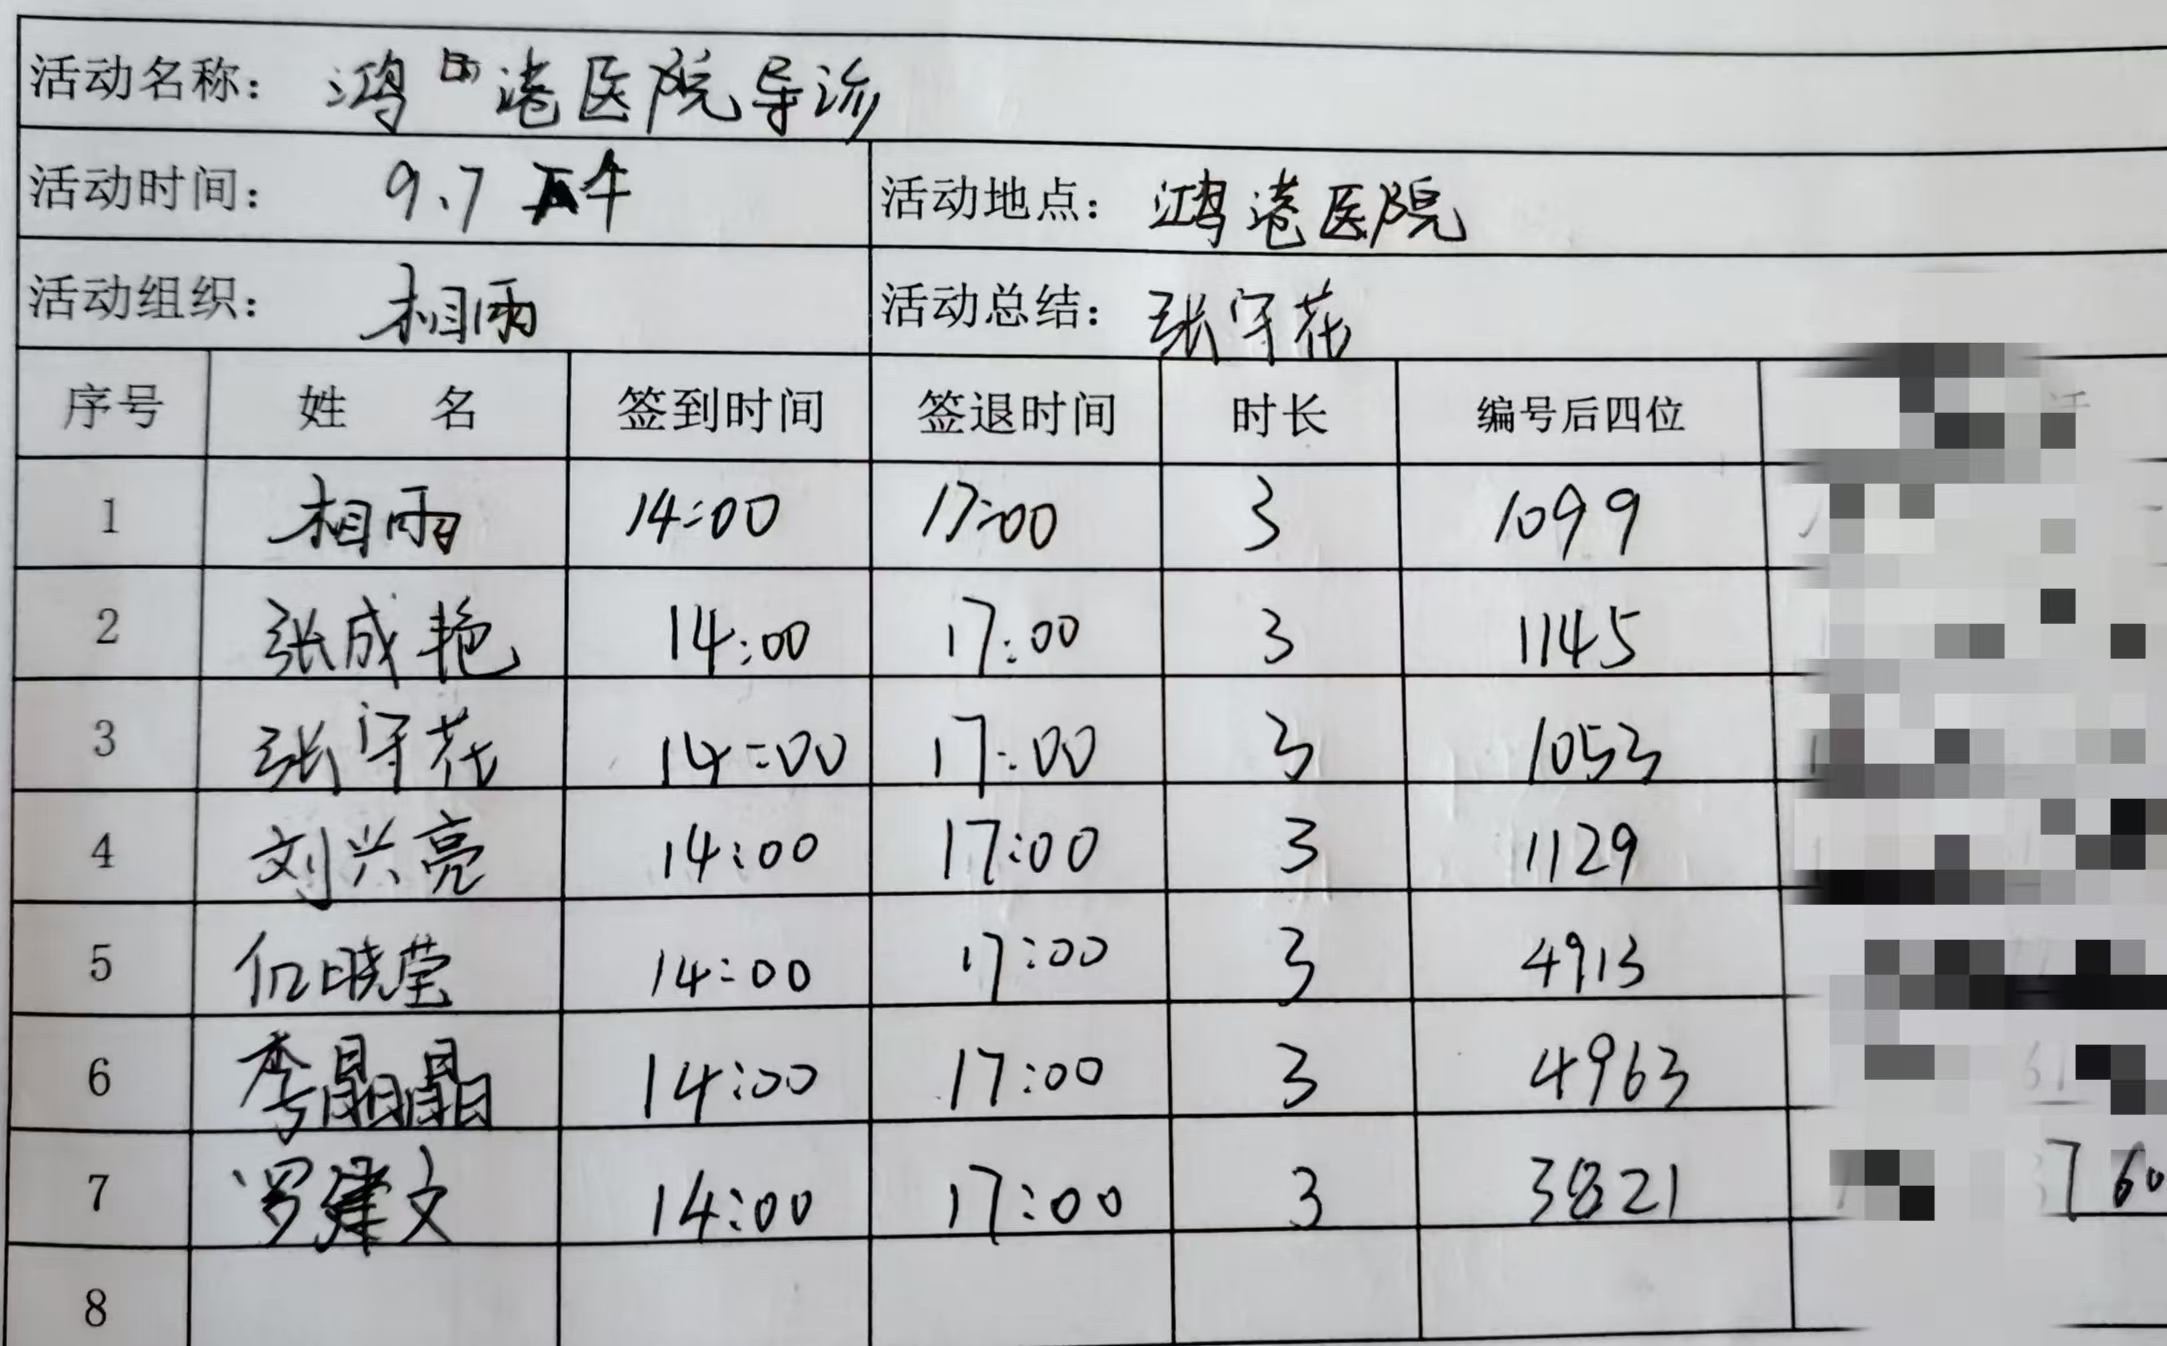 活动名称： 鸿港医院导诊
活动时间： 9.7 下午 活动地点： 鸿港医院
活动组织： 相雨 活动总结： 张守花
序号 姓 名 签到时间 签退时间 时长 编号后四位
1 相雨 14:00 17:00 3 1099
2 张成艳 14:00 17:00 3 1145
3 张守花 14:00 17:00 3 1053
4 刘兴亮 14:00 17:00 3 1129
5 晓莹 14:00 17:00 3 4913
6 李晶晶 14:00 17:00 3 4963
7 罗建文 14:00 17:00 3 3821
8